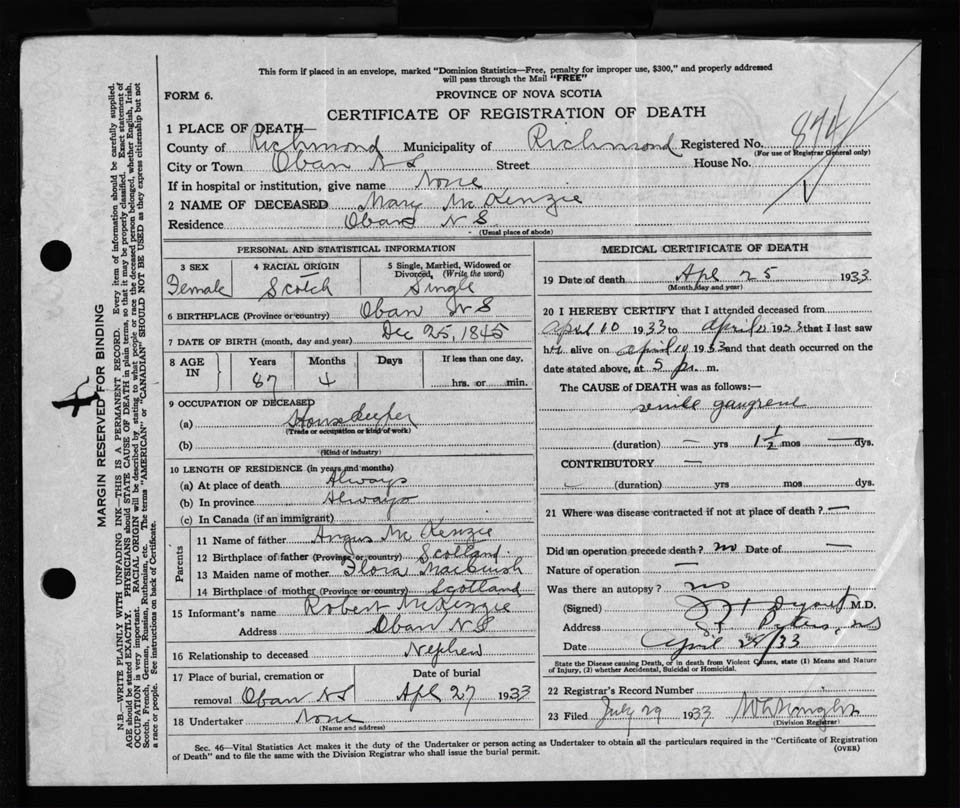 This form if placed in an envelope, marked "Dominion Statistics—Free, penalty for improper use, $300," and properly addressed
will pass through the Mail "FREE"
FORM 6.
PROVINCE OF NOVA SCOTIA
CERTIFICATE OF REGISTRATION OF DEATH
1 PLACE OF DEATH—
County of Richmond Municipality of Richmond Registered No. 874
(For use of Registrar General only)
City or Town Oban N S Street House No.
If in hospital or institution, give name None
2 NAME OF DECEASED Mary McKenzie
Residence Oban N S
(Usual place of abode)
PERSONAL AND STATISTICAL INFORMATION
3 SEX 4 RACIAL ORIGIN 5 Single, Married, Widowed or Divorced, (Write the word)
Female Scotch Single
6 BIRTHPLACE (Province or country) Oban N S
7 DATE OF BIRTH (month, day and year) Dec 25, 1845
8 AGE IN Years Months Days If less than one day,
87 4 hrs. or min.
9 OCCUPATION OF DECEASED
(a) Housekeeper
(Trade or occupation or kind of work)
(b)
(Kind of industry)
10 LENGTH OF RESIDENCE (in years and months)
(a) At place of death Always
(b) In province Always
(c) In Canada (if an immigrant)
Parents
11 Name of father Angus McKenzie
12 Birthplace of father (Province or country) Scotland
13 Maiden name of mother Flora
14 Birthplace of mother (Province or country) Scotland
15 Informant's name Robert McKenzie
Address Oban N S
16 Relationship to deceased Nephew
17 Place of burial, cremation or Date of burial
removal Oban NS Apl 27 1933
18 Undertaker None
(Name and address)
MEDICAL CERTIFICATE OF DEATH
19 Date of death Apl 25 1933
(Month, day and year)
20 I HEREBY CERTIFY that I attended deceased from
April 10 1933 to April 1933 that I last saw
her alive on April 10 1933 and that death occurred on the
date stated above, at 5 p. m.
The CAUSE of DEATH was as follows:
senile gangrene
(duration) — yrs 1 1/2 mos — dys.
CONTRIBUTORY —
(duration) yrs mos dys.
21 Where was disease contracted if not at place of death? —
Did an operation precede death? no Date of —
Nature of operation —
Was there an autopsy? no
(Signed) M.D.
Address St. Peters, NS
Date April /33
State the Disease causing Death, or in death from Violent Causes, state (1) Means and Nature
of Injury, (2) whether Accidental, Suicidal or Homicidal.
22 Registrar's Record Number
23 Filed July 29 1933
(Division Registrar)
Sec. 46—Vital Statistics Act makes it the duty of the Undertaker or person acting as Undertaker to obtain all the particulars required in the "Certificate of Registration
of Death" and to file the same with the Division Registrar who shall issue the burial permit.
(OVER)
MARGIN RESERVED FOR BINDING
N.B.—WRITE PLAINLY WITH UNFADING INK—THIS IS A PERMANENT RECORD. Every item of information should be carefully supplied.
AGE should be stated EXACTLY. PHYSICIANS should STATE CAUSE OF DEATH in plain terms, so that it may be properly classified. Exact statement of
OCCUPATION is very important. RACIAL ORIGIN will be described by stating to what people or race the deceased person belonged, whether English, Irish,
Scotch, French, German, Russian, Ruthenian, etc. The terms "AMERICAN" or "CANADIAN" SHOULD NOT BE USED as they express citizenship but not
a race or people. See instructions on back of Certificate.